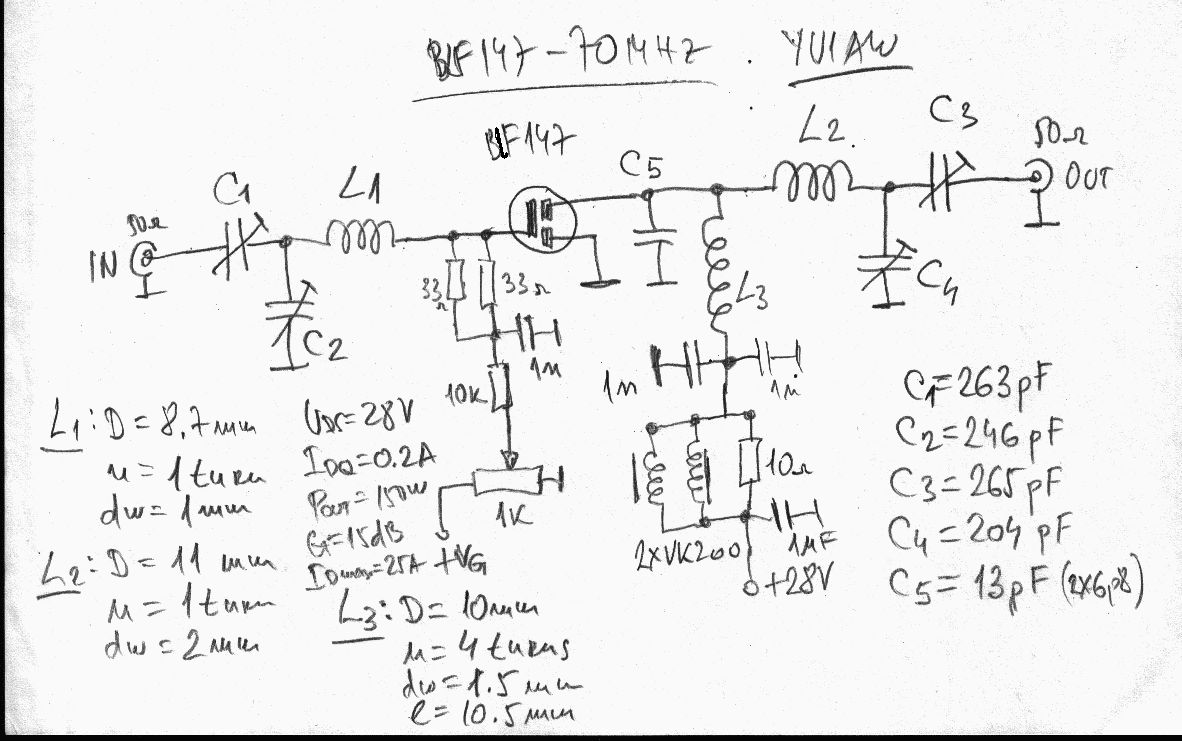 BLF147-70MHz. YU1AW
BLF147
C1
L1
C5
L2
C3
50Ω
IN
50Ω
OUT
C2
33Ω
33Ω
1n
10K
1K
+VG
L3
C4
1n
1n
10Ω
2XVK200
1µF
+28V
L1: D = 8.7mm
n = 1 turn
dw = 1mm
L2: D = 11 mm
n = 1 turn
dw = 2mm
UDS=28V
IDQ=0.2A
Pout=150W
G=15dB
IDmax=25A
L3: D= 10mm
n= 4 turns
dw=1.5mm
l= 10.5mm
C1=263pF
C2=246pF
C3=265pF
C4=204pF
C5= 13pF (2x6p8)